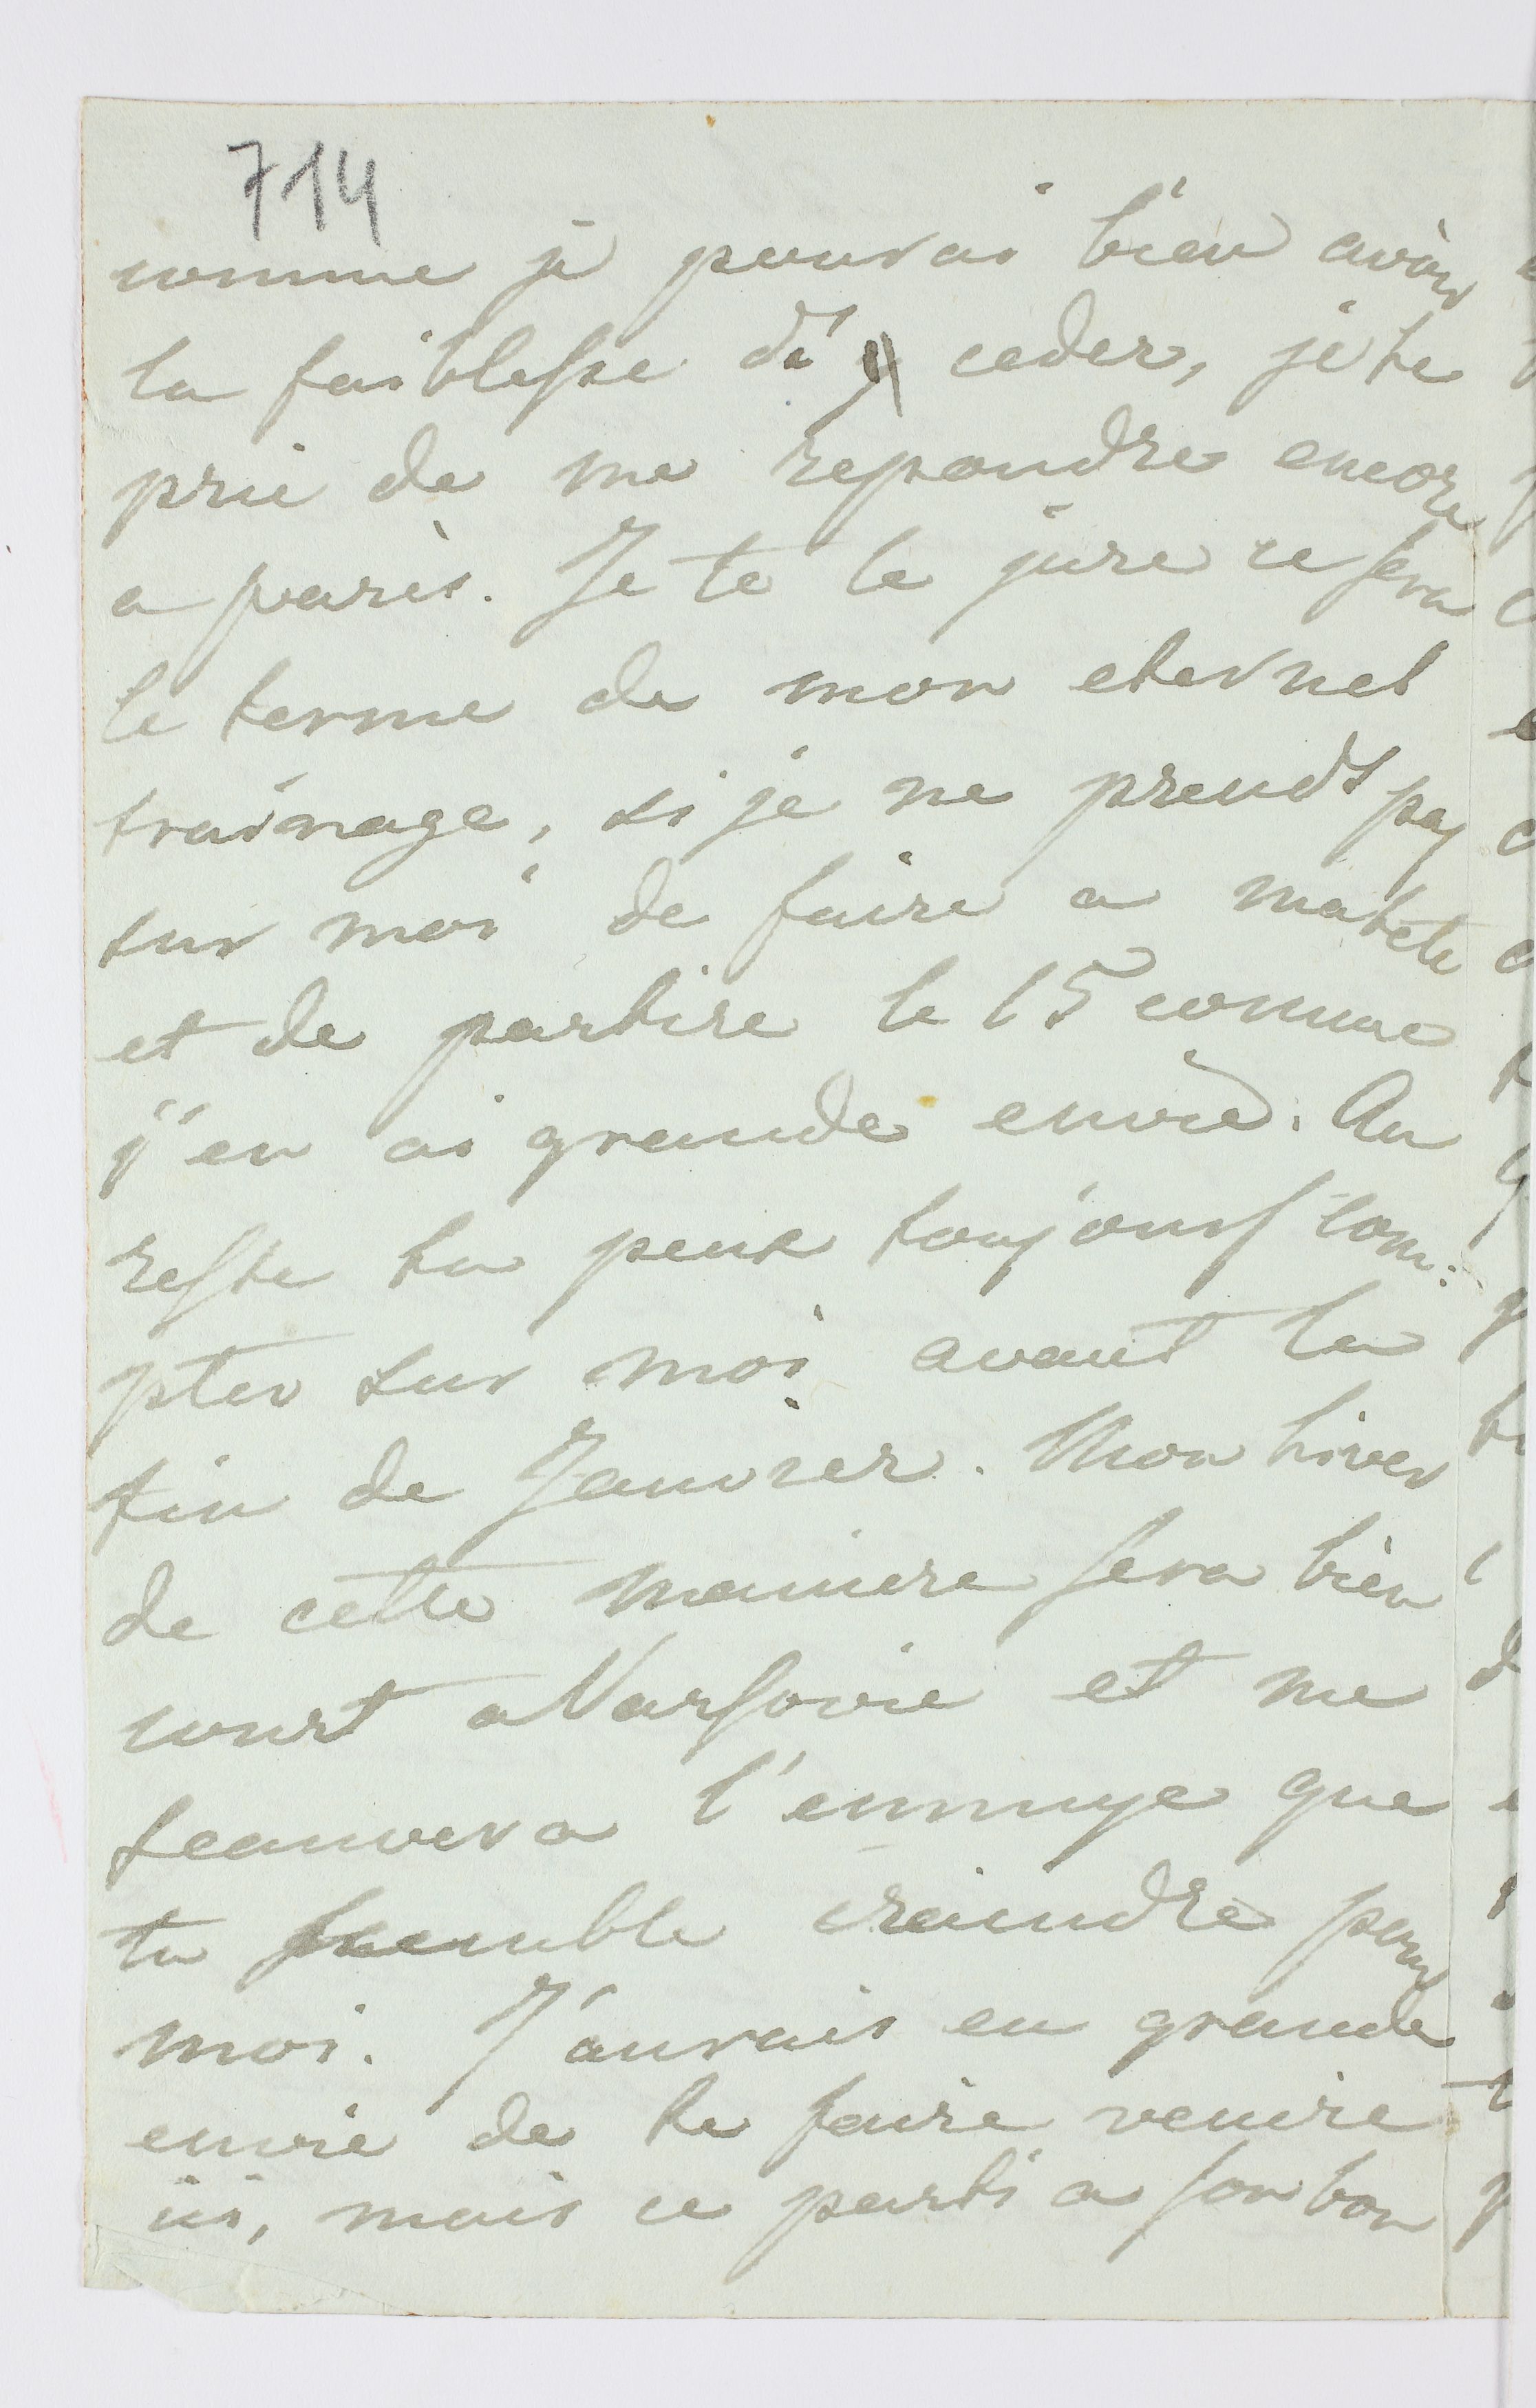 714
comme je pourai bien avoir
la faiblesse d'y ceder, je te
prie de me repondre encore
a paris. Je te le jure ce sera
le terme de mon eternel
trainage, si je ne prends pas
sur moi de faire a ma tete
et de partire le 15 comme
j'en ai grande envie. Au
reste tu peux toujours com:
pter sur moi avant la
fin de Janvier. Mon hiver
de cette maniere sera bien
court a Varsovie et me
seauvera l'ennuye que
tu semble craindre pour
moi. J'aurais eu grande
envie de te faire venire
ici, mais ce parti a son bon